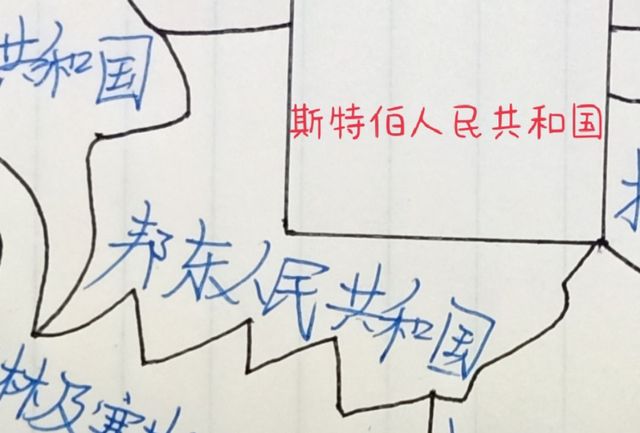 共和国
斯特伯人民共和国
邦东人民共和国
林及塞